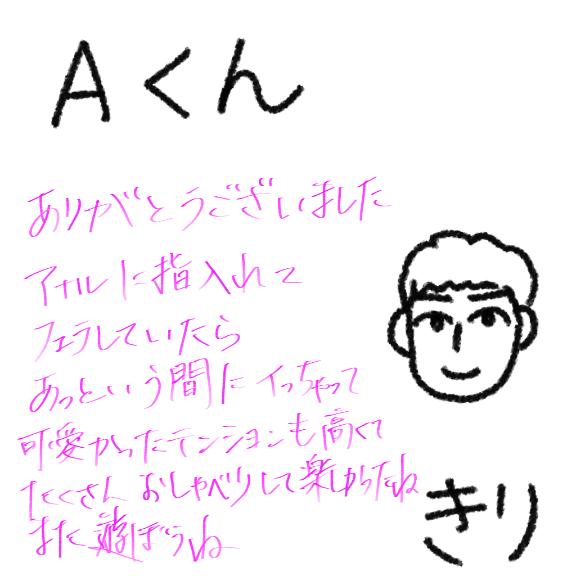 Aくん
ありがとうございました
アナルに指入れて
フェラしていたら
あっという間にイっちゃって
可愛かったテンションも高くて
たくさんおしゃべりして楽しかったね
また遊ぼうね
きり